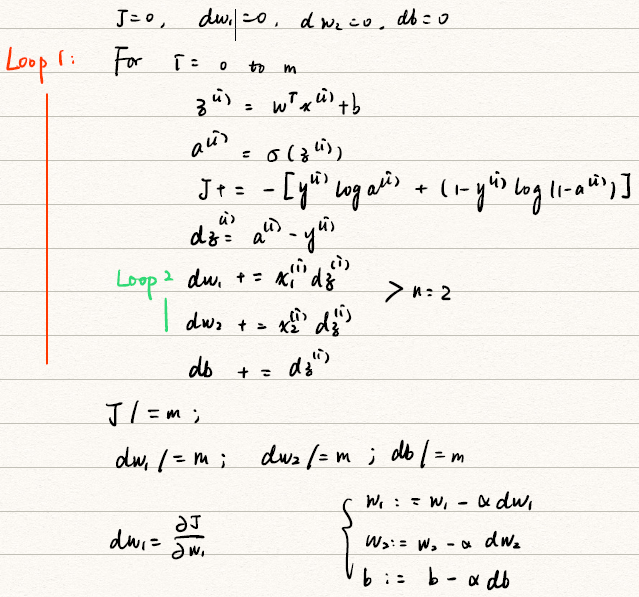 J=0, dw₁=0, dw₂=0. db=0
Loop 1: For i= 0 to m
z⁽ⁱ⁾ = wᵀx⁽ⁱ⁾+b
a⁽ⁱ⁾ = σ(z⁽ⁱ⁾)
J+= -[y⁽ⁱ⁾ log a⁽ⁱ⁾ + (1-y⁽ⁱ⁾ log (1-a⁽ⁱ⁾)]
dz⁽ⁱ⁾= a⁽ⁱ⁾-y⁽ⁱ⁾
Loop 2 dw₁ += x₁⁽ⁱ⁾dz⁽ⁱ⁾ > n=2
dw₂ += x₂⁽ⁱ⁾dz⁽ⁱ⁾
db += dz⁽ⁱ⁾
J/=m;
dw₁/=m; dw₂/=m; db/=m
dw₁= ∂J/∂w₁
w₁:=w₁-αdw₁
w₂:=w₂-αdw₂
b:=b-αdb